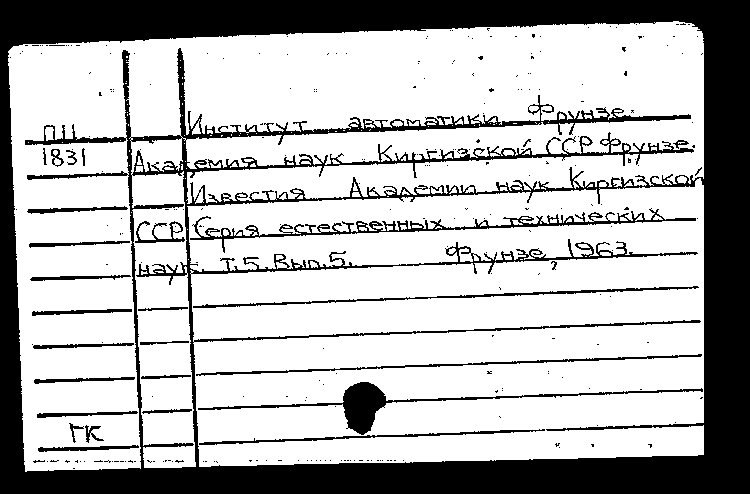 П11 Институт автоматики. Фрунзе.
1831 Академия наук Киргизской ССР Фрунзе.
Известия Академии наук Киргизской
ССР Серия естественных и технических
наук. Т.5. Вып.5. Фрунзе, 1963.
ГК